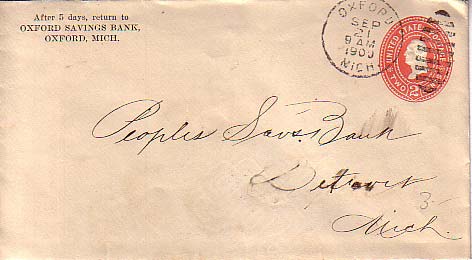 After 5 days, return to
OXFORD SAVINGS BANK,
OXFORD, MICH.
OXFORD
SEP
21
8 AM
1900
MICH.
UNITED STATES POSTAGE
TWO 2
Peoples Savs. Bank
Detroit
Mich.
3